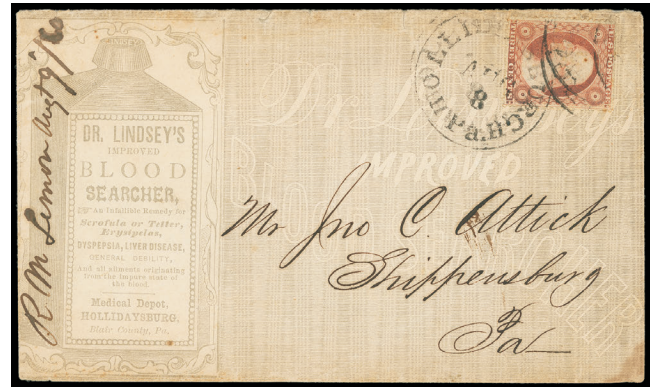 LINDSEY
DR. LINDSEY'S
IMPROVED
BLOOD
SEARCHER,
An Infallible Remedy for
Scrofula or Tetter,
Erysipelas,
DYSPEPSIA, LIVER DISEASE,
GENERAL DEBILITY,
And all ailments originating
from the impure state of
the blood.
Medical Depot,
HOLLIDAYSBURG.
Blair County, Pa.
R M Lemon Augt 9/60
HOLLIDAYSBURGH Pa.
AUG
8
Dr Lindseys
IMPROVED
Blood
SEARCHER
Mr Jno C. Attick
Shippensburg
Pa